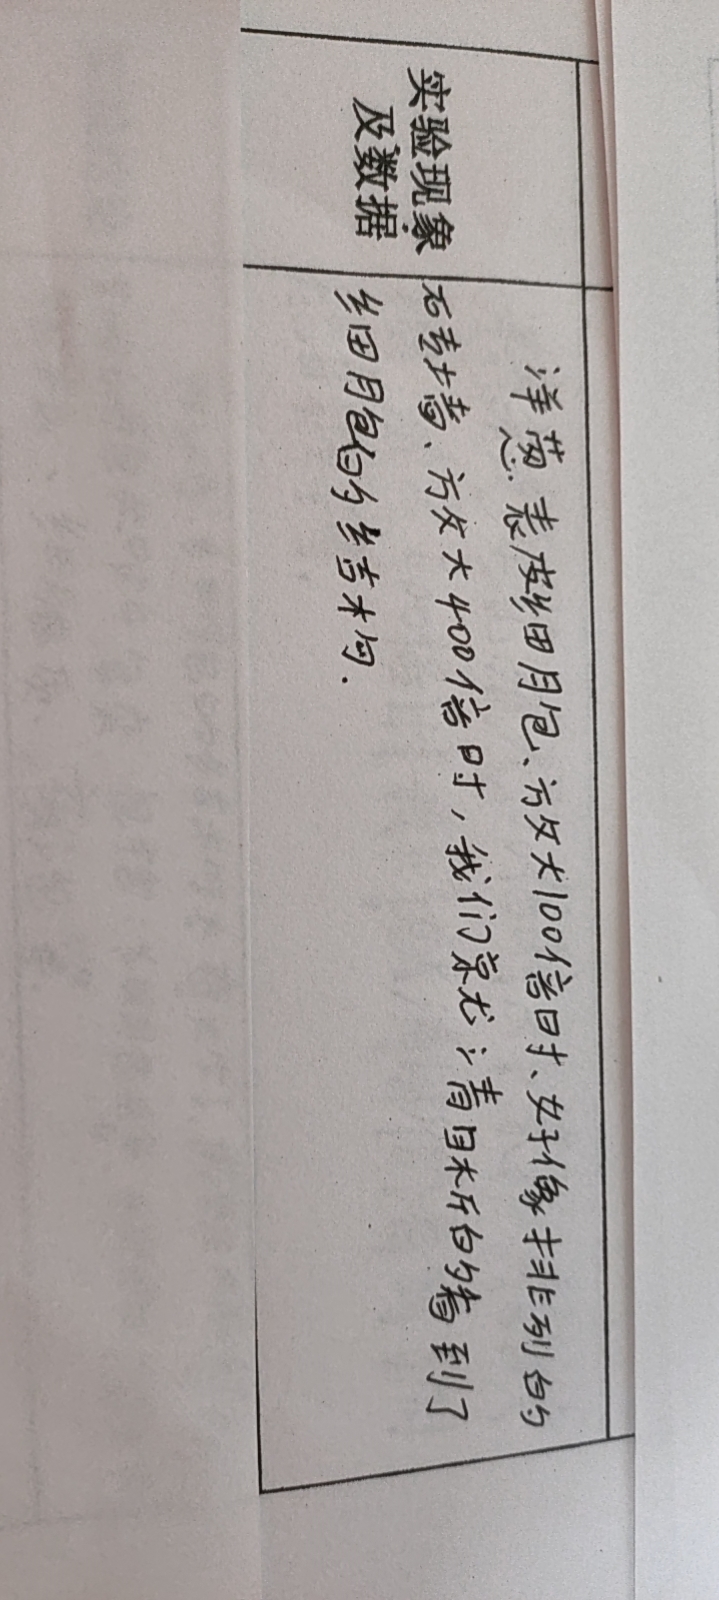 实验现象
及数据
洋葱表皮细胞、放大100倍时、好像排列的
砖墙、放大400倍时，我们就清晰的看到了
细胞的结构.